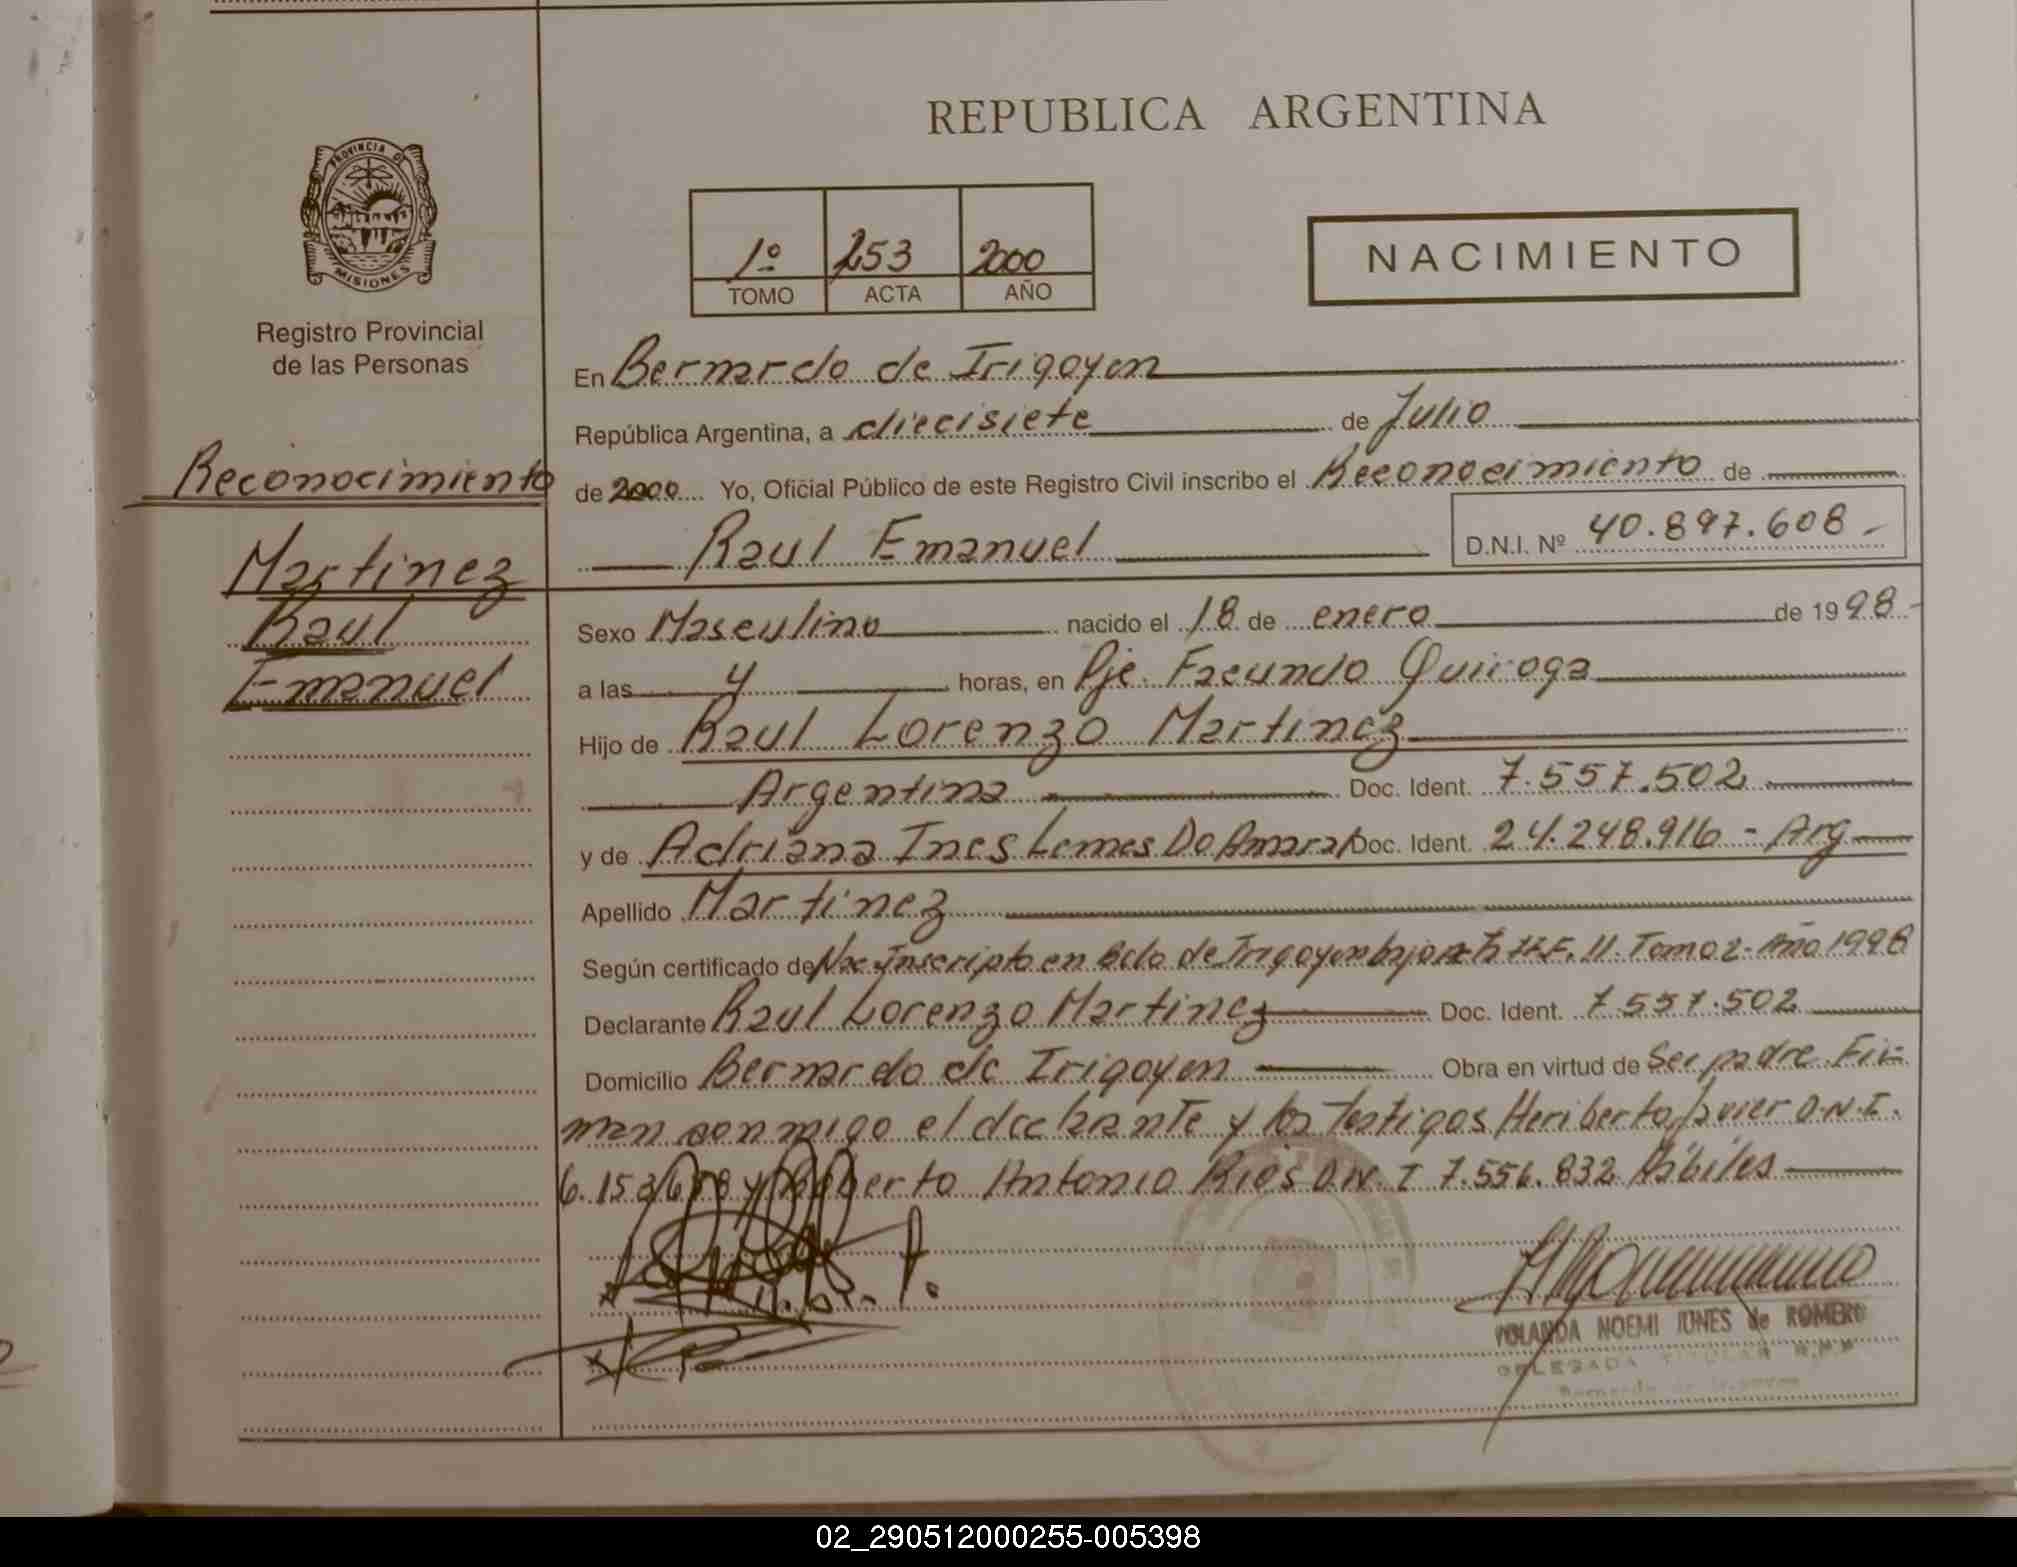 REPUBLICA ARGENTINA
PROVINCIA DE
MISIONES
Registro Provincial
de las Personas
1º 253 2000
TOMO ACTA AÑO
NACIMIENTO
Reconocimiento
Martinez
Raul
Emanuel
En Bernardo de Irigoyen
República Argentina, a diecisiete de Julio
de 2000 Yo, Oficial Público de este Registro Civil inscribo el Reconocimiento de
Raul Emanuel D.N.I. Nº 40.897.608
Sexo Masculino nacido el 18 de enero de 1998
a las 4 horas, en Pje. Facundo Quiroga
Hijo de Raul Lorenzo Martinez
Argentina Doc. Ident. 7.557.502
y de Adriana Ines Lemes Do Amaral Doc. Ident. 24.248.916 - Arg
Apellido Martinez
Según certificado de Inscripto en Bdo de Irigoyen bajo 11. Tomo 2- Año 1998
Declarante Raul Lorenzo Martinez Doc. Ident. 7.557.502
Domicilio Bernardo de Irigoyen Obra en virtud de Ser padre. Fir-
man conmigo el declarante y los testigos Heriberto D.N.I.
y Antonio Rios D.N.I 7.556.832 Hábiles
YOLANDA NOEMI JUNES de ROMERO
DELEGADA TITULAR
Bernardo de Irigoyen
02_290512000255-005398